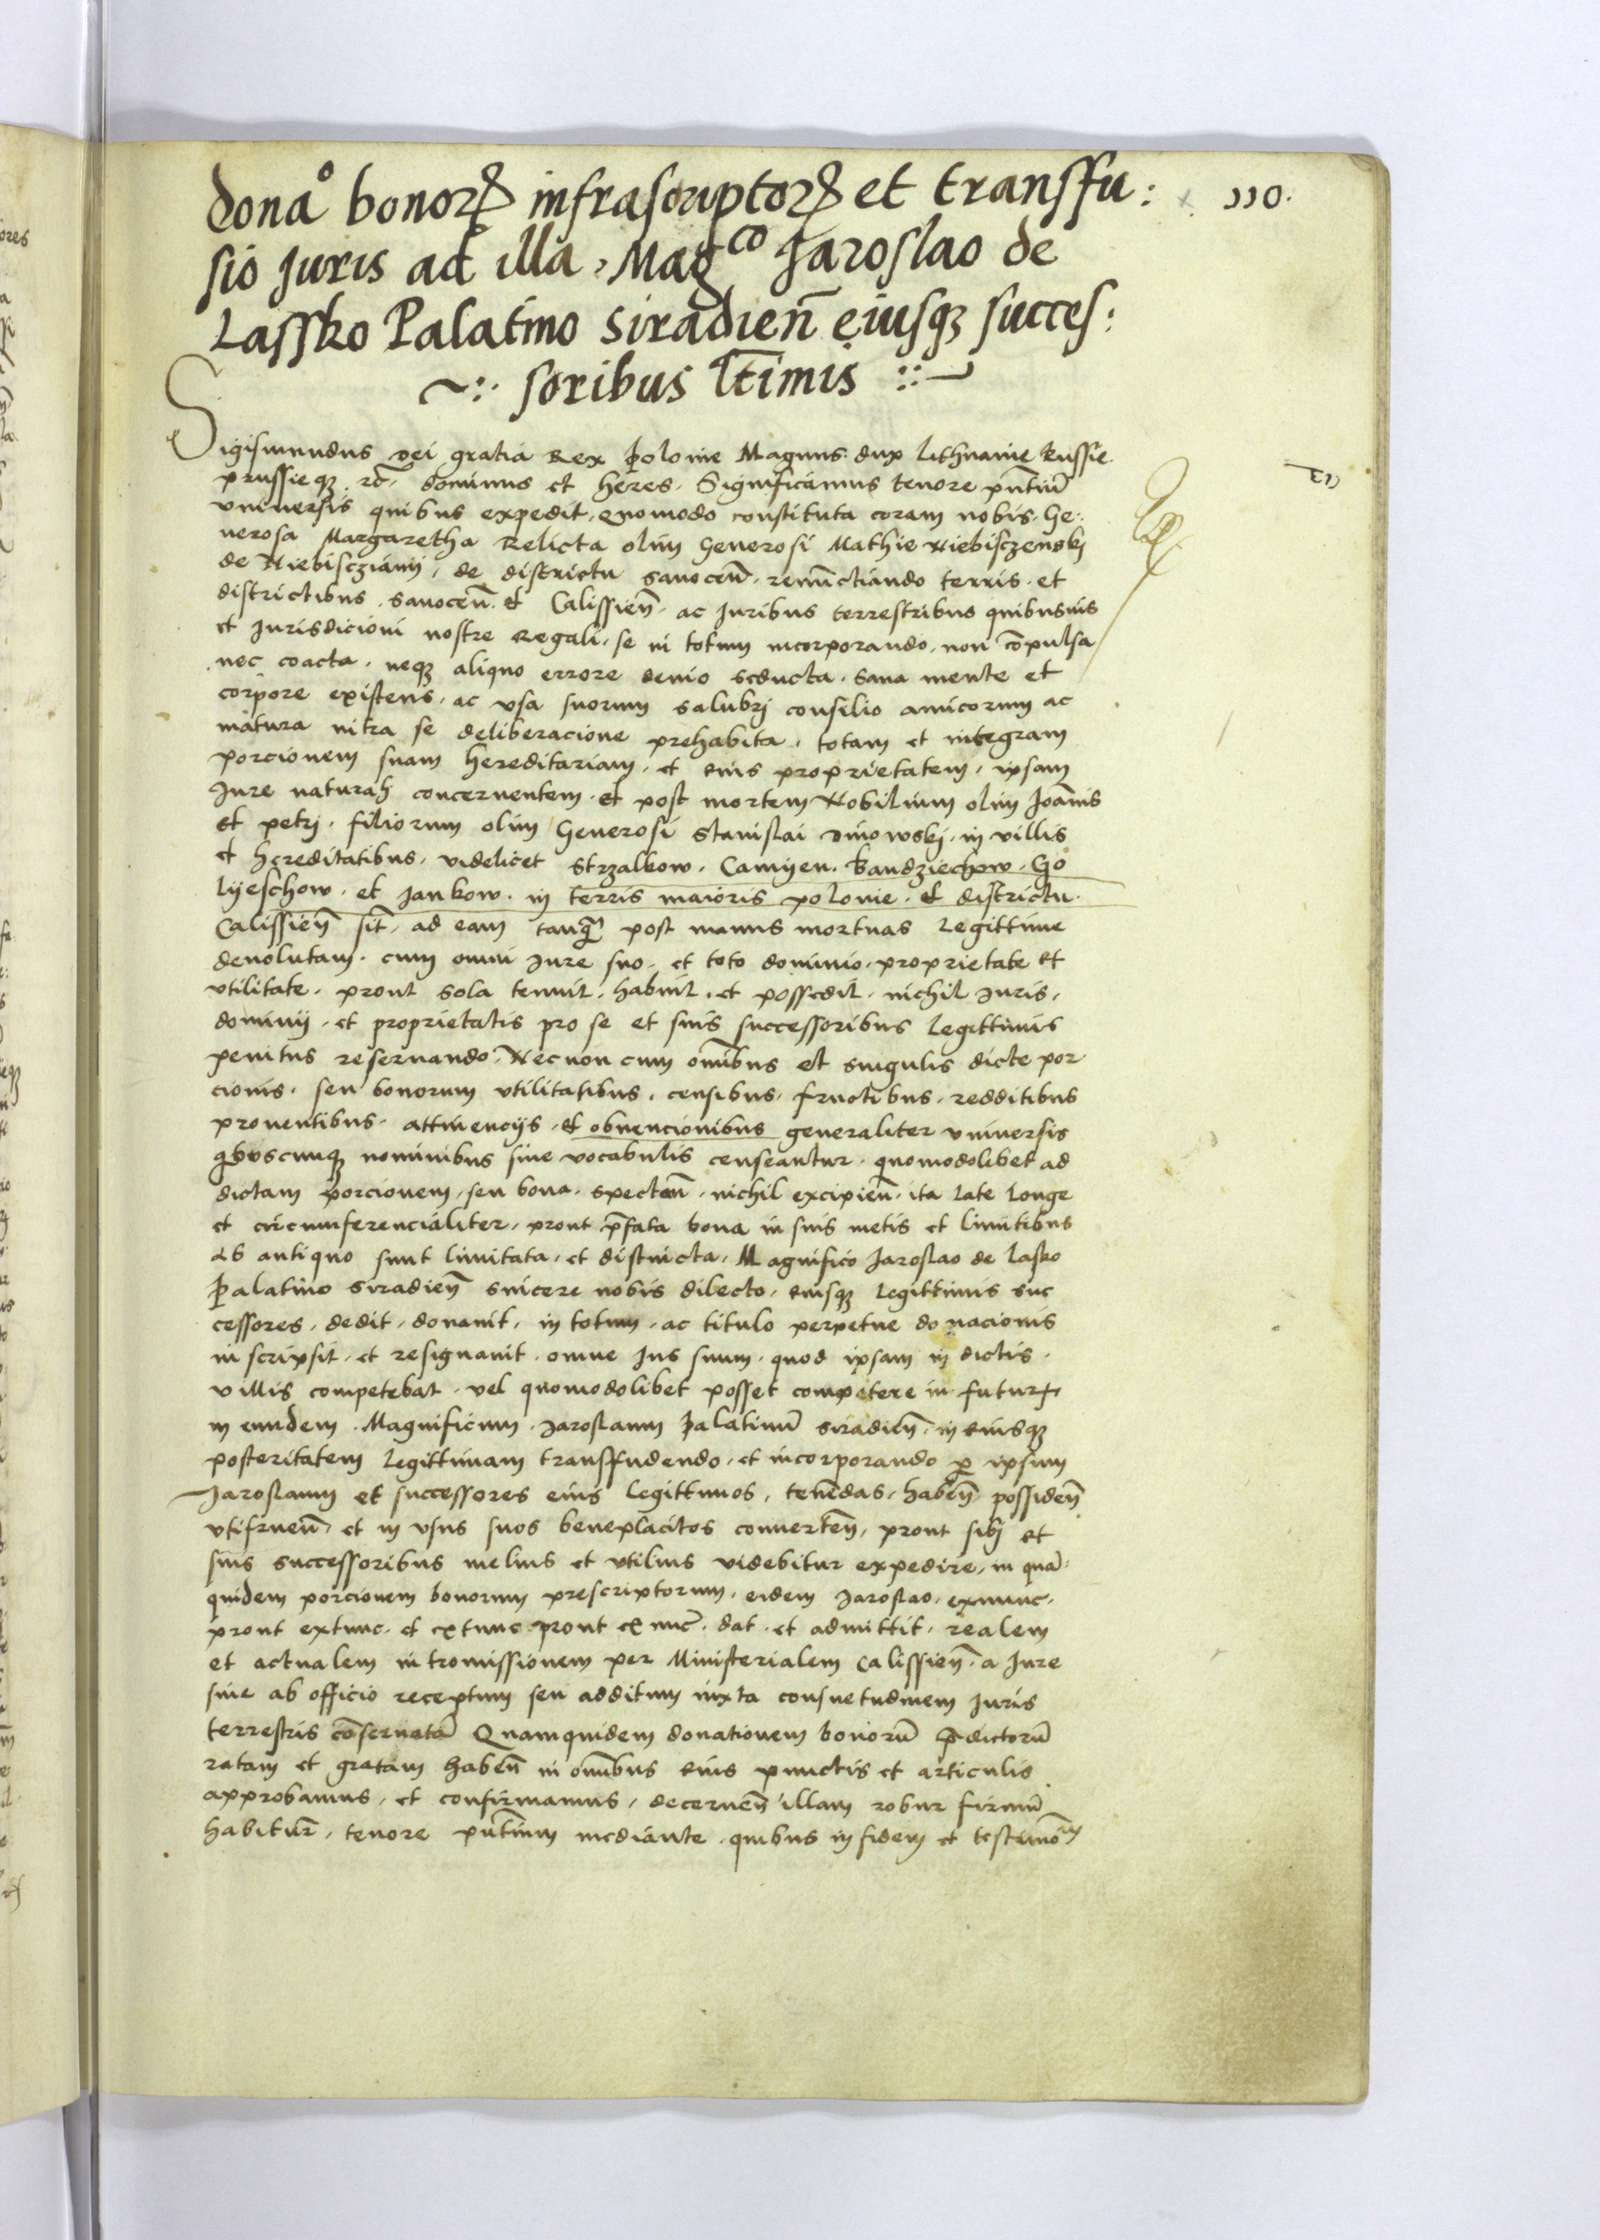 donaº bonorꝝ infrascriptorꝝ et transffu:
110.
sio Juris ad illa, Magco Jaroslao de
Lassko Palatino Siradieñ eiusqꝫ succes:
soribus lt̄imis
Sigismundus dei gratia Rex Polonie Magnus dux Lithuanie Russie
prussieqꝫ rc̄. dominus et heres. Significamus tenore pn̄tiū
vniuersis quibus expedit, Quomodo constituta coram nobis. Ge:
nerosa Margaretha Relicta olim Generosi Mathie Niebisczenskj
de Niebiscziani, de districtu Sanoceñ. renunctiando terris. et
districtibus. Sanoceñ. et Calissieñ. ac Juribus terrestribus quibusuis
et Jurisdicioni nostre Regali. se in totum incorporando. non cōpulsa
nec coacta. neqꝫ aliquo errore deuio seducta. Sana mente et
corpore existens. ac vsa suorum salubrj consilio amicorum ac
matura intra se deliberacione prehabita. totam et integram
porcionem suam hereditariam. et eius proprietatem, ipsam
Jure naturalj concernentem. et post mortem Nobilium olim Joānis
et petrj. filiorum olim Generosi Stanislai Dinowskj. in villis
et hereditatibus. videlicet Strzalkow. Camyen. Kandziechow. Go
lyeschow. et Jankow. in terris maioris polonie. et districtu.
Calissieñ sit̄. ad eam tanqꝫ post manus mortuas legittime
deuolutam. cum omni Jure suo. et toto dominio. proprietate et
vtilitate. prout sola tenuit. habuit. et possedit. nichil Juris.
dominij. et proprietatis pro se et suis successoribus legittimis
penitus reseruando. Necnon cum om̄ibus et singulis dicte por
cionis. seu bonorum vtilitatibus. censibus. fructibus. redditibus
prouentibus. attinencijs. et obuencionibus generaliter vniuersis
qbuscunqꝫ nominibus siue vocabulis censeantur. quomodolibet ad
dictam porcionem. seu bona. spectañ. nichil excipieñ. ita late longe
et circumferencialiter. prout p̄fata bona in suis metis et limitibus
ab antiquo sunt limitata. et distincta. Magnifico Jaroslao de Lasko
Palatino Siradieñ sincere nobis dilecto. eiusqꝫ legittimis suc
cessores. dedit. donauit. in totum. ac titulo perpetue donacionis
inscripsit. et resignauit. omne Jus suum. quod ipsam in dictis.
villis competebat. vel quomodolibet posset competere in futurꝫ
in eundem. Magnificum. Jaroslaum Palatinū Siradieñ. in eiusqꝫ
posteritatem legittimam transffundendo. et incorporando ꝑ ipsum
Jaroslaum et successores eius legittimos. tenēdas. habeñ possideñ
vtifrueñ. et in vsus suos beneplacitos conuerteñ. prout sibj et
suis successoribus melius et vtilius videbitur expedire. in quā
quidem porcionem bonorum prescriptorum. eidem Jaroslao. exnunc.
prout extunc. et extunc prout exnūc. dat. et admittit. realem
et actualem intromissionem per Ministerialem Calissieñ. a Jure
siue ab officio receptum seu additum iuxta consuetudinem Juris
terrestris cōseruatā Quamquidem donationem bonorū p̄dictorū
ratam et gratam habeñ in om̄ibus eius punctis et articulis
approbamus. et confirmamus. decerneñ illam robur firmū
habitur̄. tenore pn̄tium mediante. quibus in fidem et testimōm